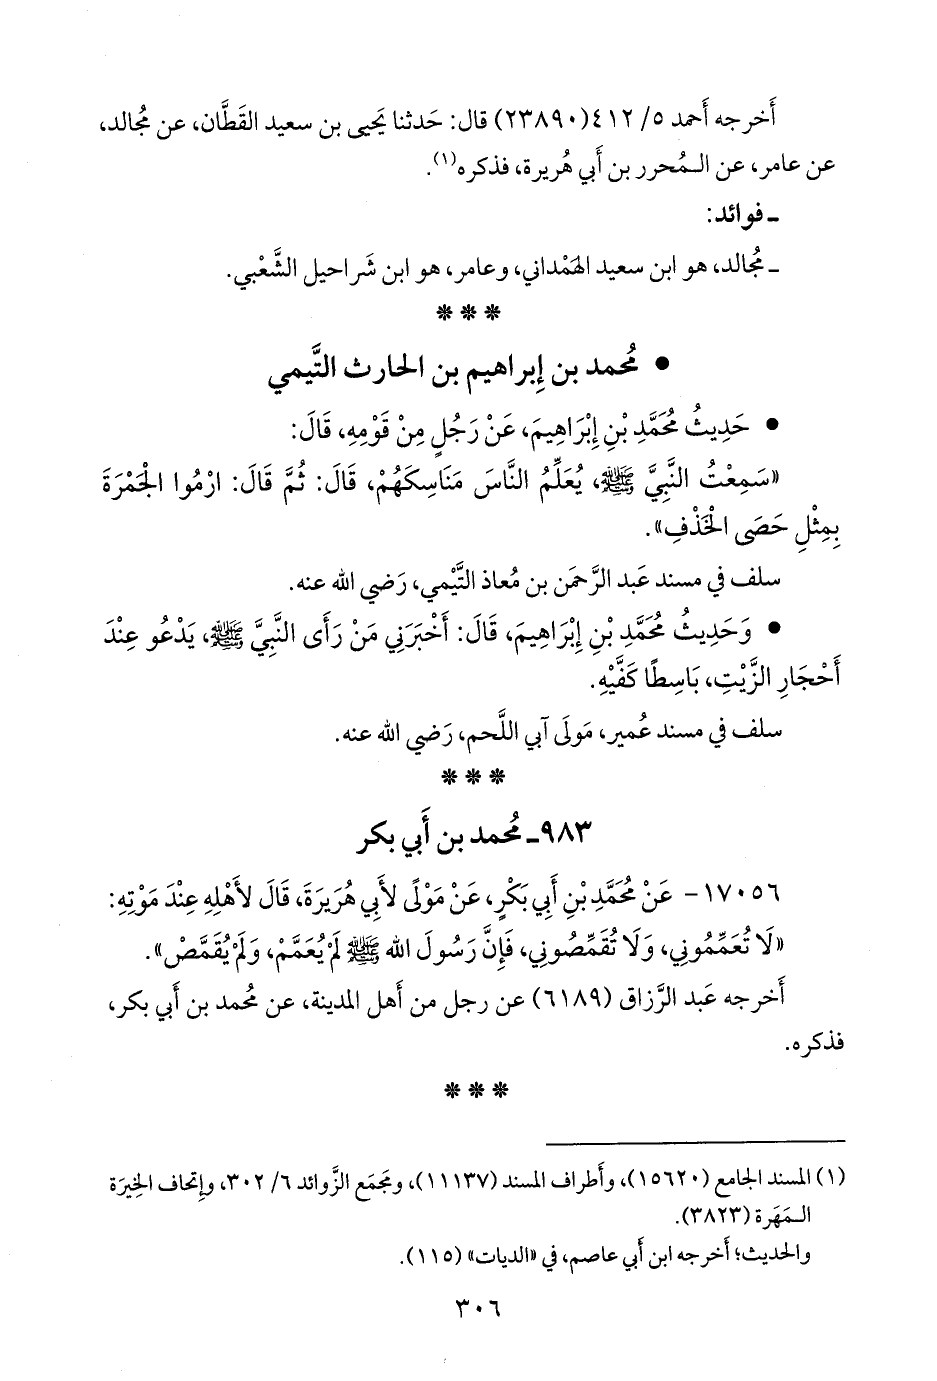 أَخرجه أَحمد ٥/ ٤١٢(٢٣٨٩٠) قال: حَدثنا يَحيى بن سعيد القَطَّان، عن مُجالد،
عن عامر، عن المُحرر بن أَبي هُريرة، فذكره(١).
ـ فوائد:
ـ مُجالد، هو ابن سعيد الهَمْداني، وعامر، هو ابن شَراحيل الشَّعْبي.
* * *
● مُحمد بن إِبراهيم بن الحارث التَّيمي
● حَدِيثُ مُحَمَّدِ بْنِ إِبْرَاهِيمَ، عَنْ رَجُلٍ مِنْ قَوْمِهِ، قَالَ:
«سَمِعْتُ النَّبِيَّ ﷺ، يُعَلِّمُ النَّاسَ مَنَاسِكَهُمْ، قَالَ: ثُمَّ قَالَ: ارْمُوا الْجَمْرَةَ
بِمِثْلِ حَصَى الْخَذْفِ».
سلف في مسند عَبد الرَّحمَن بن مُعاذ التَّيْمي، رَضي الله عنه.
● وَحَدِيثُ مُحَمَّدِ بْنِ إِبْرَاهِيمَ، قَالَ: أَخْبَرَنِي مَنْ رَأَى النَّبِيَّ ﷺ، يَدْعُو عِنْدَ
أَحْجَارِ الزَّيْتِ، بَاسِطًا كَفَّيْهِ.
سلف في مسند عُمير، مَولَى آبي اللَّحم، رَضي الله عنه.
* * *
٩٨٣ـ مُحمد بن أَبي بكر
١٧٠٥٦- عَنْ مُحَمَّدِ بْنِ أَبِي بَكْرٍ، عَنْ مَوْلًى لأَبِي هُرَيرَةَ، قَالَ لأَهْلِهِ عِنْدَ مَوْتِهِ:
«لَا تُعَمِّمُونِي، وَلَا تُقَمِّصُونِي، فَإِنَّ رَسُولَ الله ﷺ لَمْ يُعَمَّمْ، وَلَمْ يُقَمَّصْ».
أَخرجه عَبد الرَّزاق (٦١٨٩) عن رجل من أَهل المدينة، عن مُحمد بن أَبي بكر،
فذكره.
* * *
(١) المسند الجامع (١٥٦٢٠)، وأَطراف المسند (١١١٣٧)، ومَجمَع الزَّوائد ٦/ ٣٠٢، وإِتحاف الخِيرَة
المَهَرة (٣٨٢٣).
والحديث؛ أَخرجه ابن أَبي عاصم، في «الديات» (١١٥).
٣٠٦